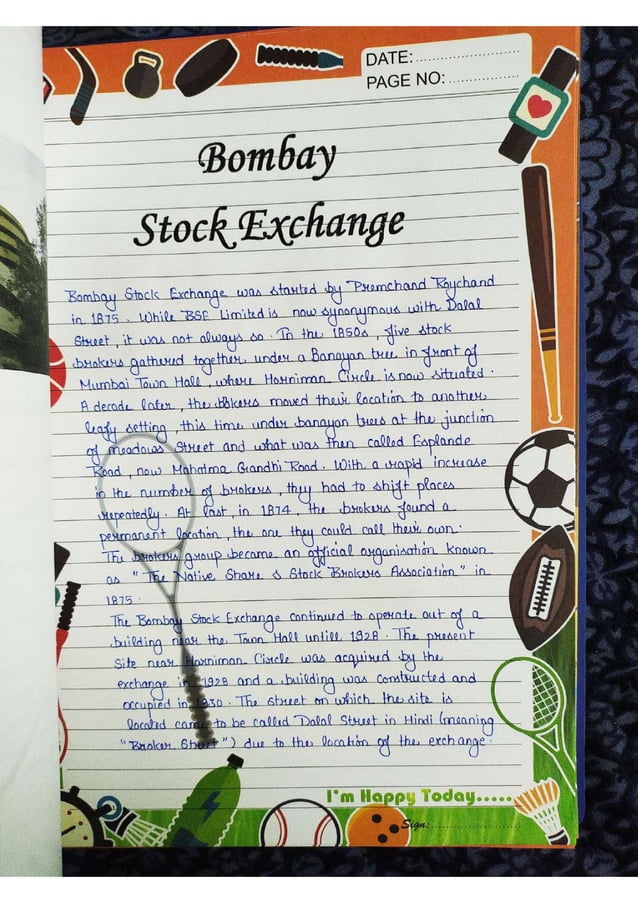 DATE:
PAGE NO:
Bombay
Stock Exchange
Bombay Stock Exchange was started by Premchand Roychand
in 1875. While BSE Limited is now synonymous with Dalal
Street, it was not always so. In the 1850s, five stock
brokers gathered together under a Banayan tree in front of
Mumbai Town Hall, where Horniman Circle is now situated.
A decade later, the brokers moved their location to another
leafy setting, this time under banayan trees at the junction
of meadows Street and what was then called Esplande
Road, now Mahatma Grandhi Road. With a rapid increase
in the number of brokers, they had to shift places
repeatedly. At last, in 1874, the brokers found a
permanent location, the one they could call their own.
The brokers group became an official organisation known
as "The Native Share & Stock Brokers Association" in
1875.
The Bombay Stock Exchange continued to operate out of a
building near the Town Hall untill 1928. The present
site near Horniman Circle was acquired by the
exchange in 1928 and a building was constructed and
occupied in 1930. The street on which the site is
located came to be called Dalal Street in Hindi (meaning
"Broker Street") due to the location of the exchange.
I'm Happy Today.....
Sign: